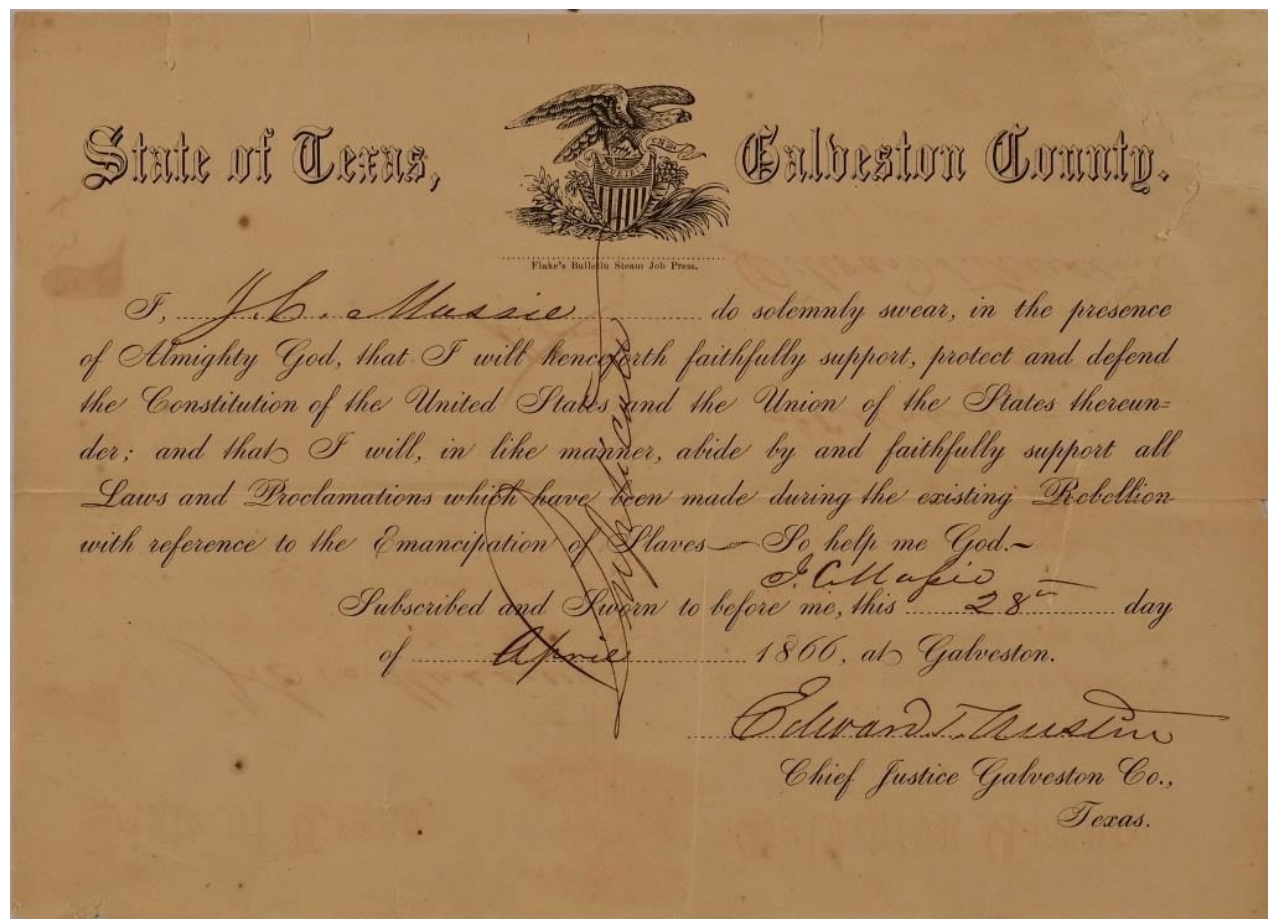 State of Texas, Galveston County.
Flake's Bulletin Steam Job Press.
I, J. C. Massie do solemnly swear, in the presence
of Almighty God, that I will henceforth faithfully support, protect and defend
the Constitution of the United States and the Union of the States thereun=
der; and that I will, in like manner, abide by and faithfully support all
Laws and Proclamations which have been made during the existing Rebellion
with reference to the Emancipation of Slaves — So help me God. ~
J. C. Massie
Subscribed and Sworn to before me, this 28th day
of April 1866, at Galveston.
Edward T. Austin
Chief Justice Galveston Co.,
Texas.
Duplicate